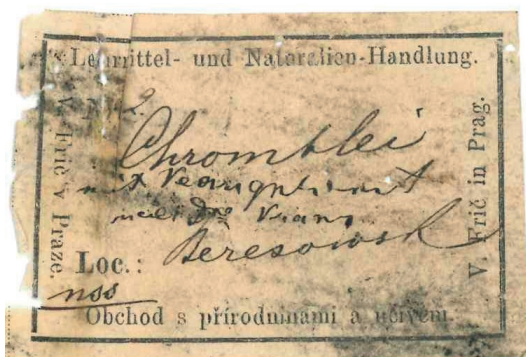 Lehrmittel- und Naturalien-Handlung.
V. Frič v Praze.
V. Frič in Prag.
2.
Chromblei
mit Vauquelinit
Loc.: Beresowsk
Obchod s přírodninami a učivem.